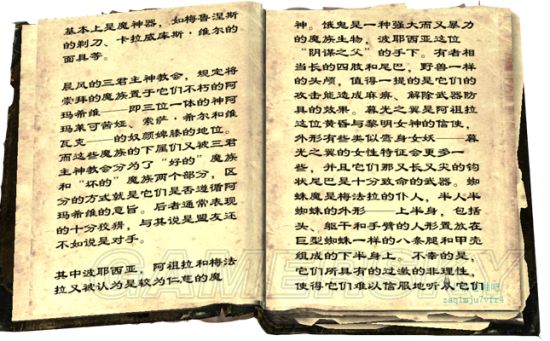 基本上是魔神器,如梅鲁涅斯
的剃刀、卡拉威库斯·维尔的
面具等。
晨风的三君主神教会,规定将
崇拜的魔族置于它们不朽的神阿
玛希维——即三位一体的神阿
莱可茜娅、索萨·希尔和维
瓦克——的奴颜婢膝的地位。
而这些魔族的下属们又被三君
主神教会分为了“好的”魔族
和“坏的”魔族两个部分,区
分的方式就是它们是否遵循阿
玛希维的意旨。后者通常表现
的十分狡猾,与其说是盟友还
不如说是对手。
其中波耶西亚,阿祖拉和梅法
拉又被认为是较为仁慈的魔
神。饿鬼是一种强大而又暴力
的魔族生物,波耶西亚这位
“阴谋之父”的手下。有者相
当长的四肢和尾巴,野兽一样
的头颅,值得一提的是它们的
攻击能造成麻痹、解除武器防
具的效果。暮光之翼是阿祖拉
这位黄昏与黎明女神的信使,
外形有些类似鹰身女妖——暮
光之翼的女性特征会更多一
些,并且它们那又长又尖的钩
状尾巴是十分致命的武器。蜘
蛛魔是梅法拉的仆人,半人半
蜘蛛的外形——上半身,包括
头、躯干和手臂的人形置放在
巨型蜘蛛一样的八条腿和甲壳
组成的下半身上。不幸的是,
它们所具有的过激的非理性,
使得它们难以信服地听从它们
GAMERSKY
zaq1mju7vfr4